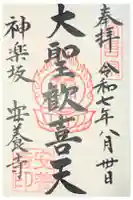 奉拝 令和七年八月廿日
大聖歓喜天
神楽坂 安養寺